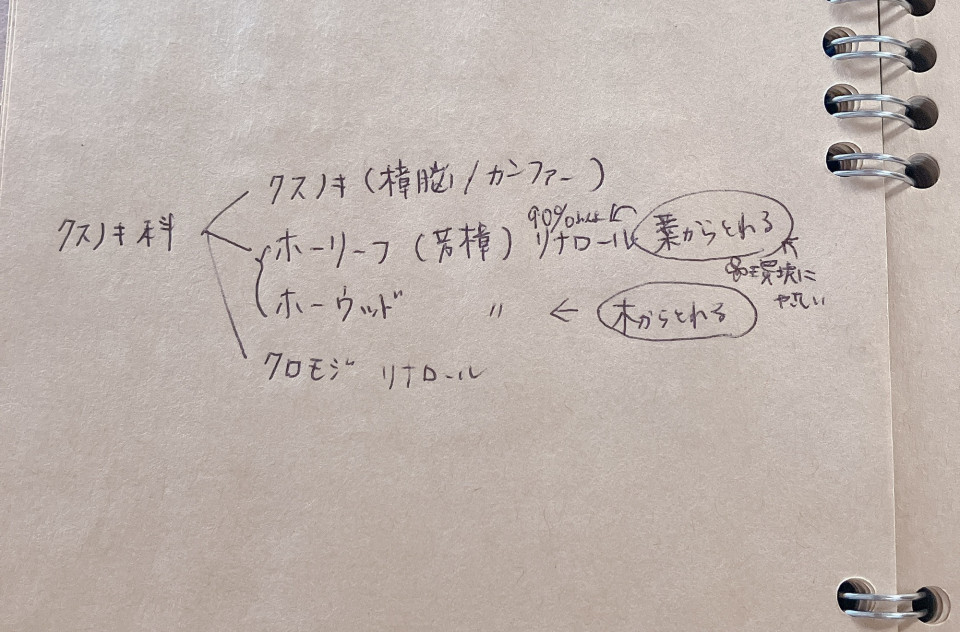 クスノキ科
クスノキ(樟脳/カンファー)
ホーリーフ(芳樟) リナロール 葉からとれる
90%
環境に
やさしい
ホーウッド 〃 ← 木からとれる
クロモジ リナロール